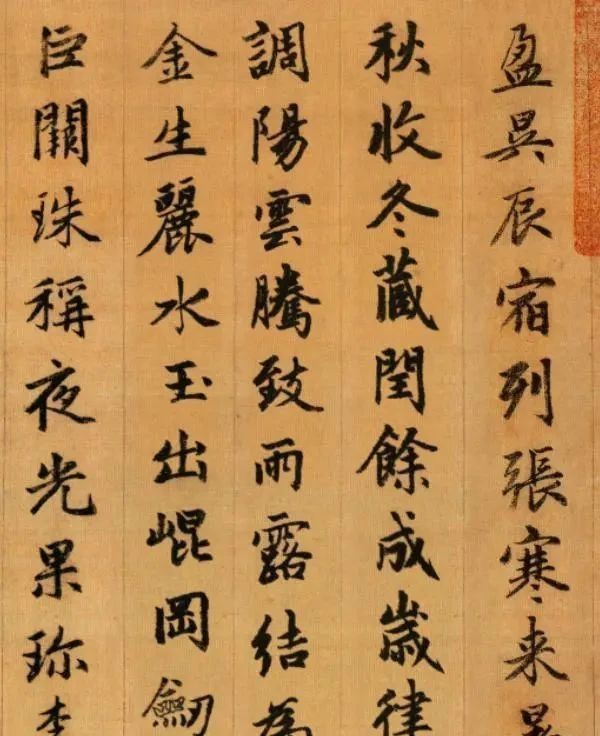 盈昃辰宿列張寒来暑
秋收冬藏閏餘成歲律
調陽雲騰致雨露結為
金生麗水玉出崐岡劔
巨闕珠稱夜光果珎李